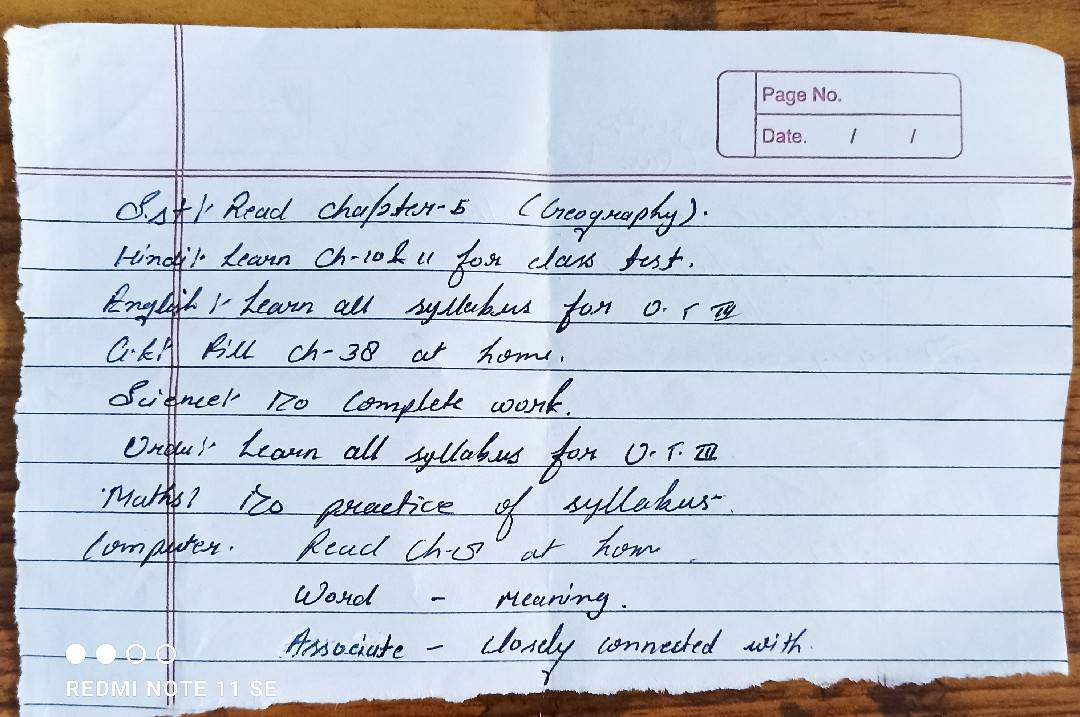 Page No.
Date. / /
S.st:- Read chapter-5 (Geography).
Hindi:- Learn Ch-10 & 11 for class test.
English:- Learn all syllabus for U.T III
G.k:- Fill ch-38 at home.
Science:- Do Complete work.
Urdu:- Learn all syllabus for U.T. III
Maths:- Do practice of syllabus.
Computer. Read Ch-5 at home
Word - meaning.
Associate - closely connected with.
REDMI NOTE 11 SE